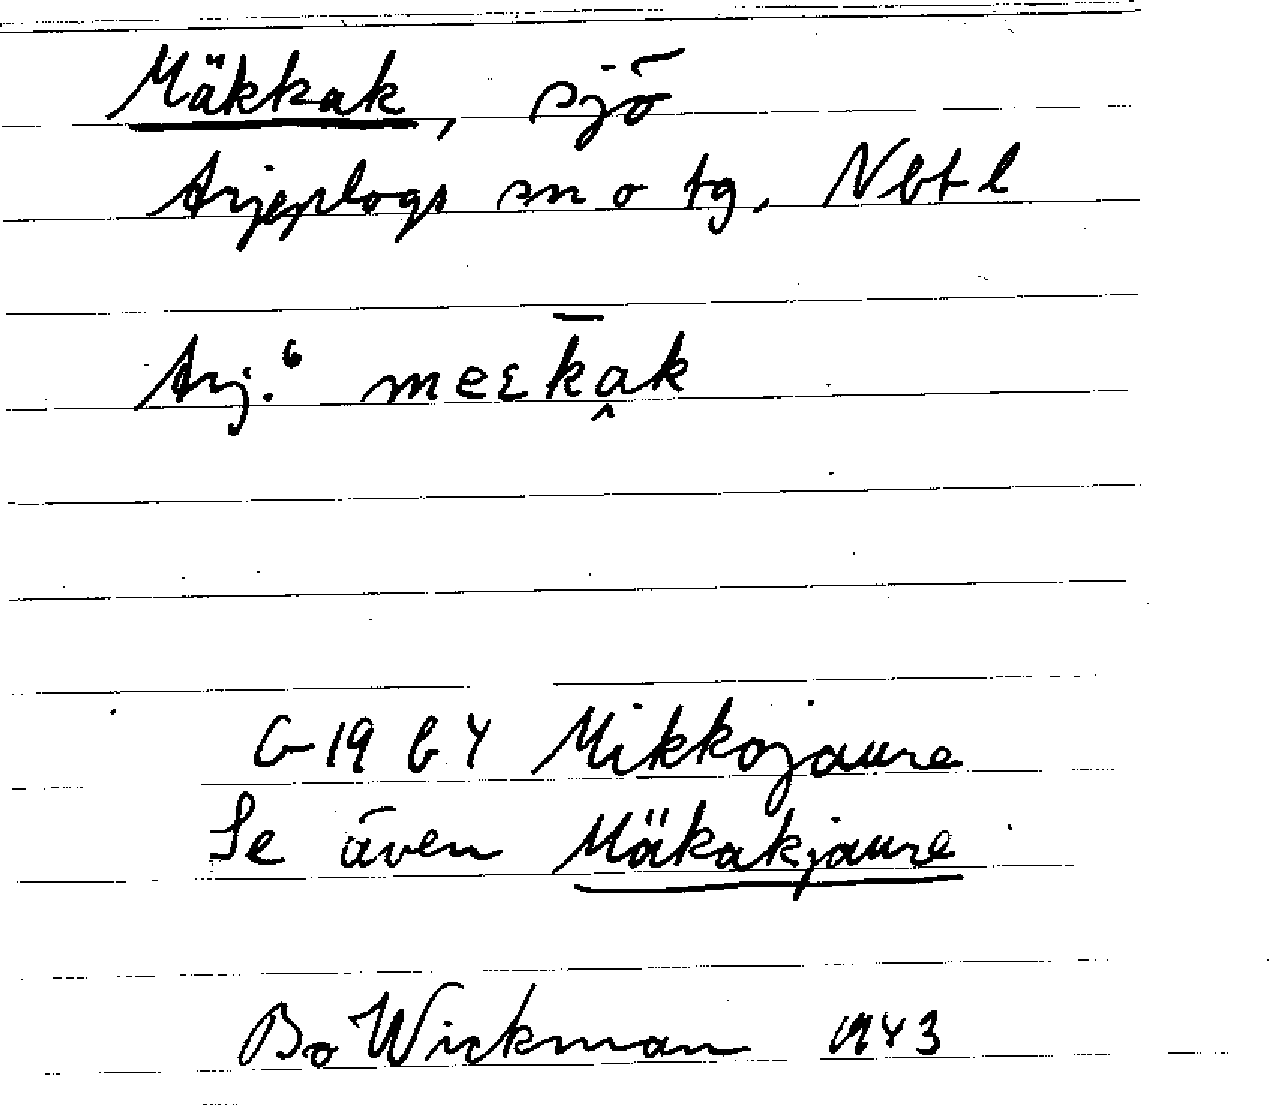 Mäkkak, sjö
Arjeplogs sn o tg, Nbt l
Arj.⁶ meεk̄a̭k
G 19 b Y Mikkojaure
Se även Mäkakjaure
Bo Wickman 1943